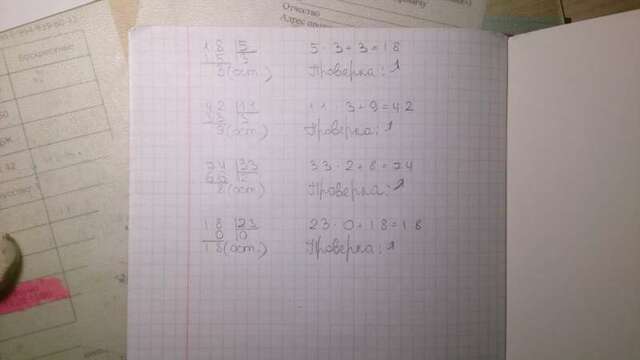 Отчество
Воскресенье
18 5 5 · 3 + 3 = 18
15 3 Проверка: 1
3 (ост.)
42 11 11 · 3 + 9 = 42
33 3 Проверка: 1
9 (ост)
74 33 33 · 2 + 8 = 74
66 2 Проверка: 1
8 (ост)
18 23 23 · 0 + 18 = 18
0 0 Проверка: 1
18 (ост.)